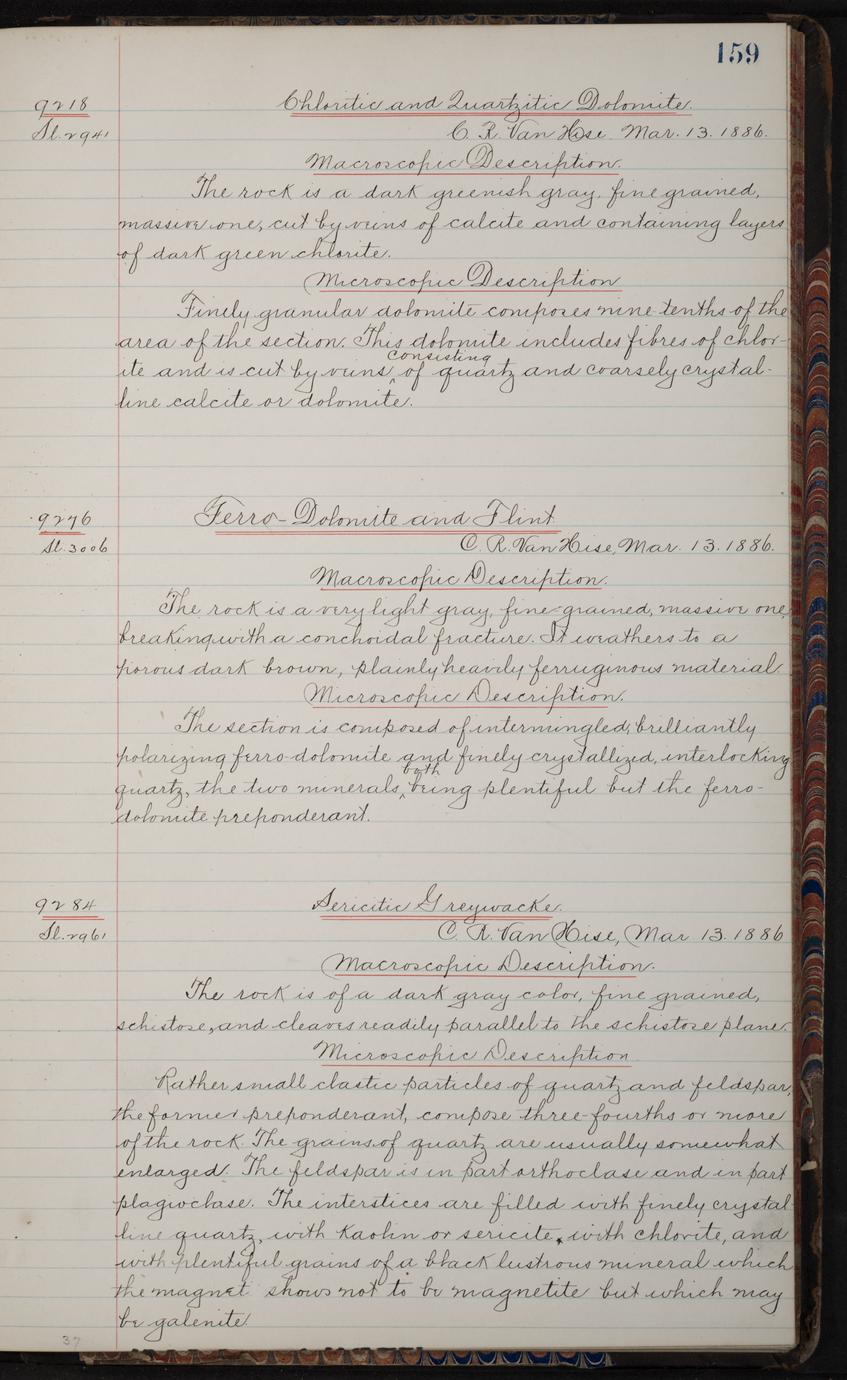 159
9218
Chloritic and Quartzitic Dolomite.
Sl. 2941
C. R. Van Hise Mar. 13. 1886.
Macroscopic Description.
The rock is a dark greenish gray, fine grained,
massive one, cut by veins of calcite and containing layers
of dark green chlorite.
Microscopic Description
Finely granular dolomite composes nine-tenths of the
area of the section. This dolomite includes fibres of chlor-
ite and is cut by veins ^consisting of quartz and coarsely crystal-
line calcite or dolomite.
9276
Ferro-Dolomite and Flint
Sl. 3006
C. R. Van Hise, Mar. 13. 1886.
Macroscopic Description.
The rock is a very light gray, fine-grained, massive one,
breaking with a conchoidal fracture. It weathers to a
porous dark brown, plainly heavily ferruginous material.
Microscopic Description.
The section is composed of intermingled, brilliantly
polarizing ferro-dolomite and finely crystallized, interlocking
quartz, the two minerals, ^both being plentiful but the ferro-
dolomite preponderant.
9284
Sericitic Greywacke.
Sl. 2961
C. R. Van Hise, Mar 13. 1886
Macroscopic Description.
The rock is of a dark gray color, fine grained,
schistose, and cleaves readily parallel to the schistose plane.
Microscopic Description
Rather small clastic particles of quartz and feldspar,
the former preponderant, compose three-fourths or more
of the rock. The grains of quartz are usually somewhat
enlarged. The feldspar is in part orthoclase and in part
plagioclase. The interstices are filled with finely crystal-
line quartz, with kaolin or sericite, with chlorite, and
with plentiful grains of a black lustrous mineral which
the magnet shows not to be magnetite but which may
be galenite.
37